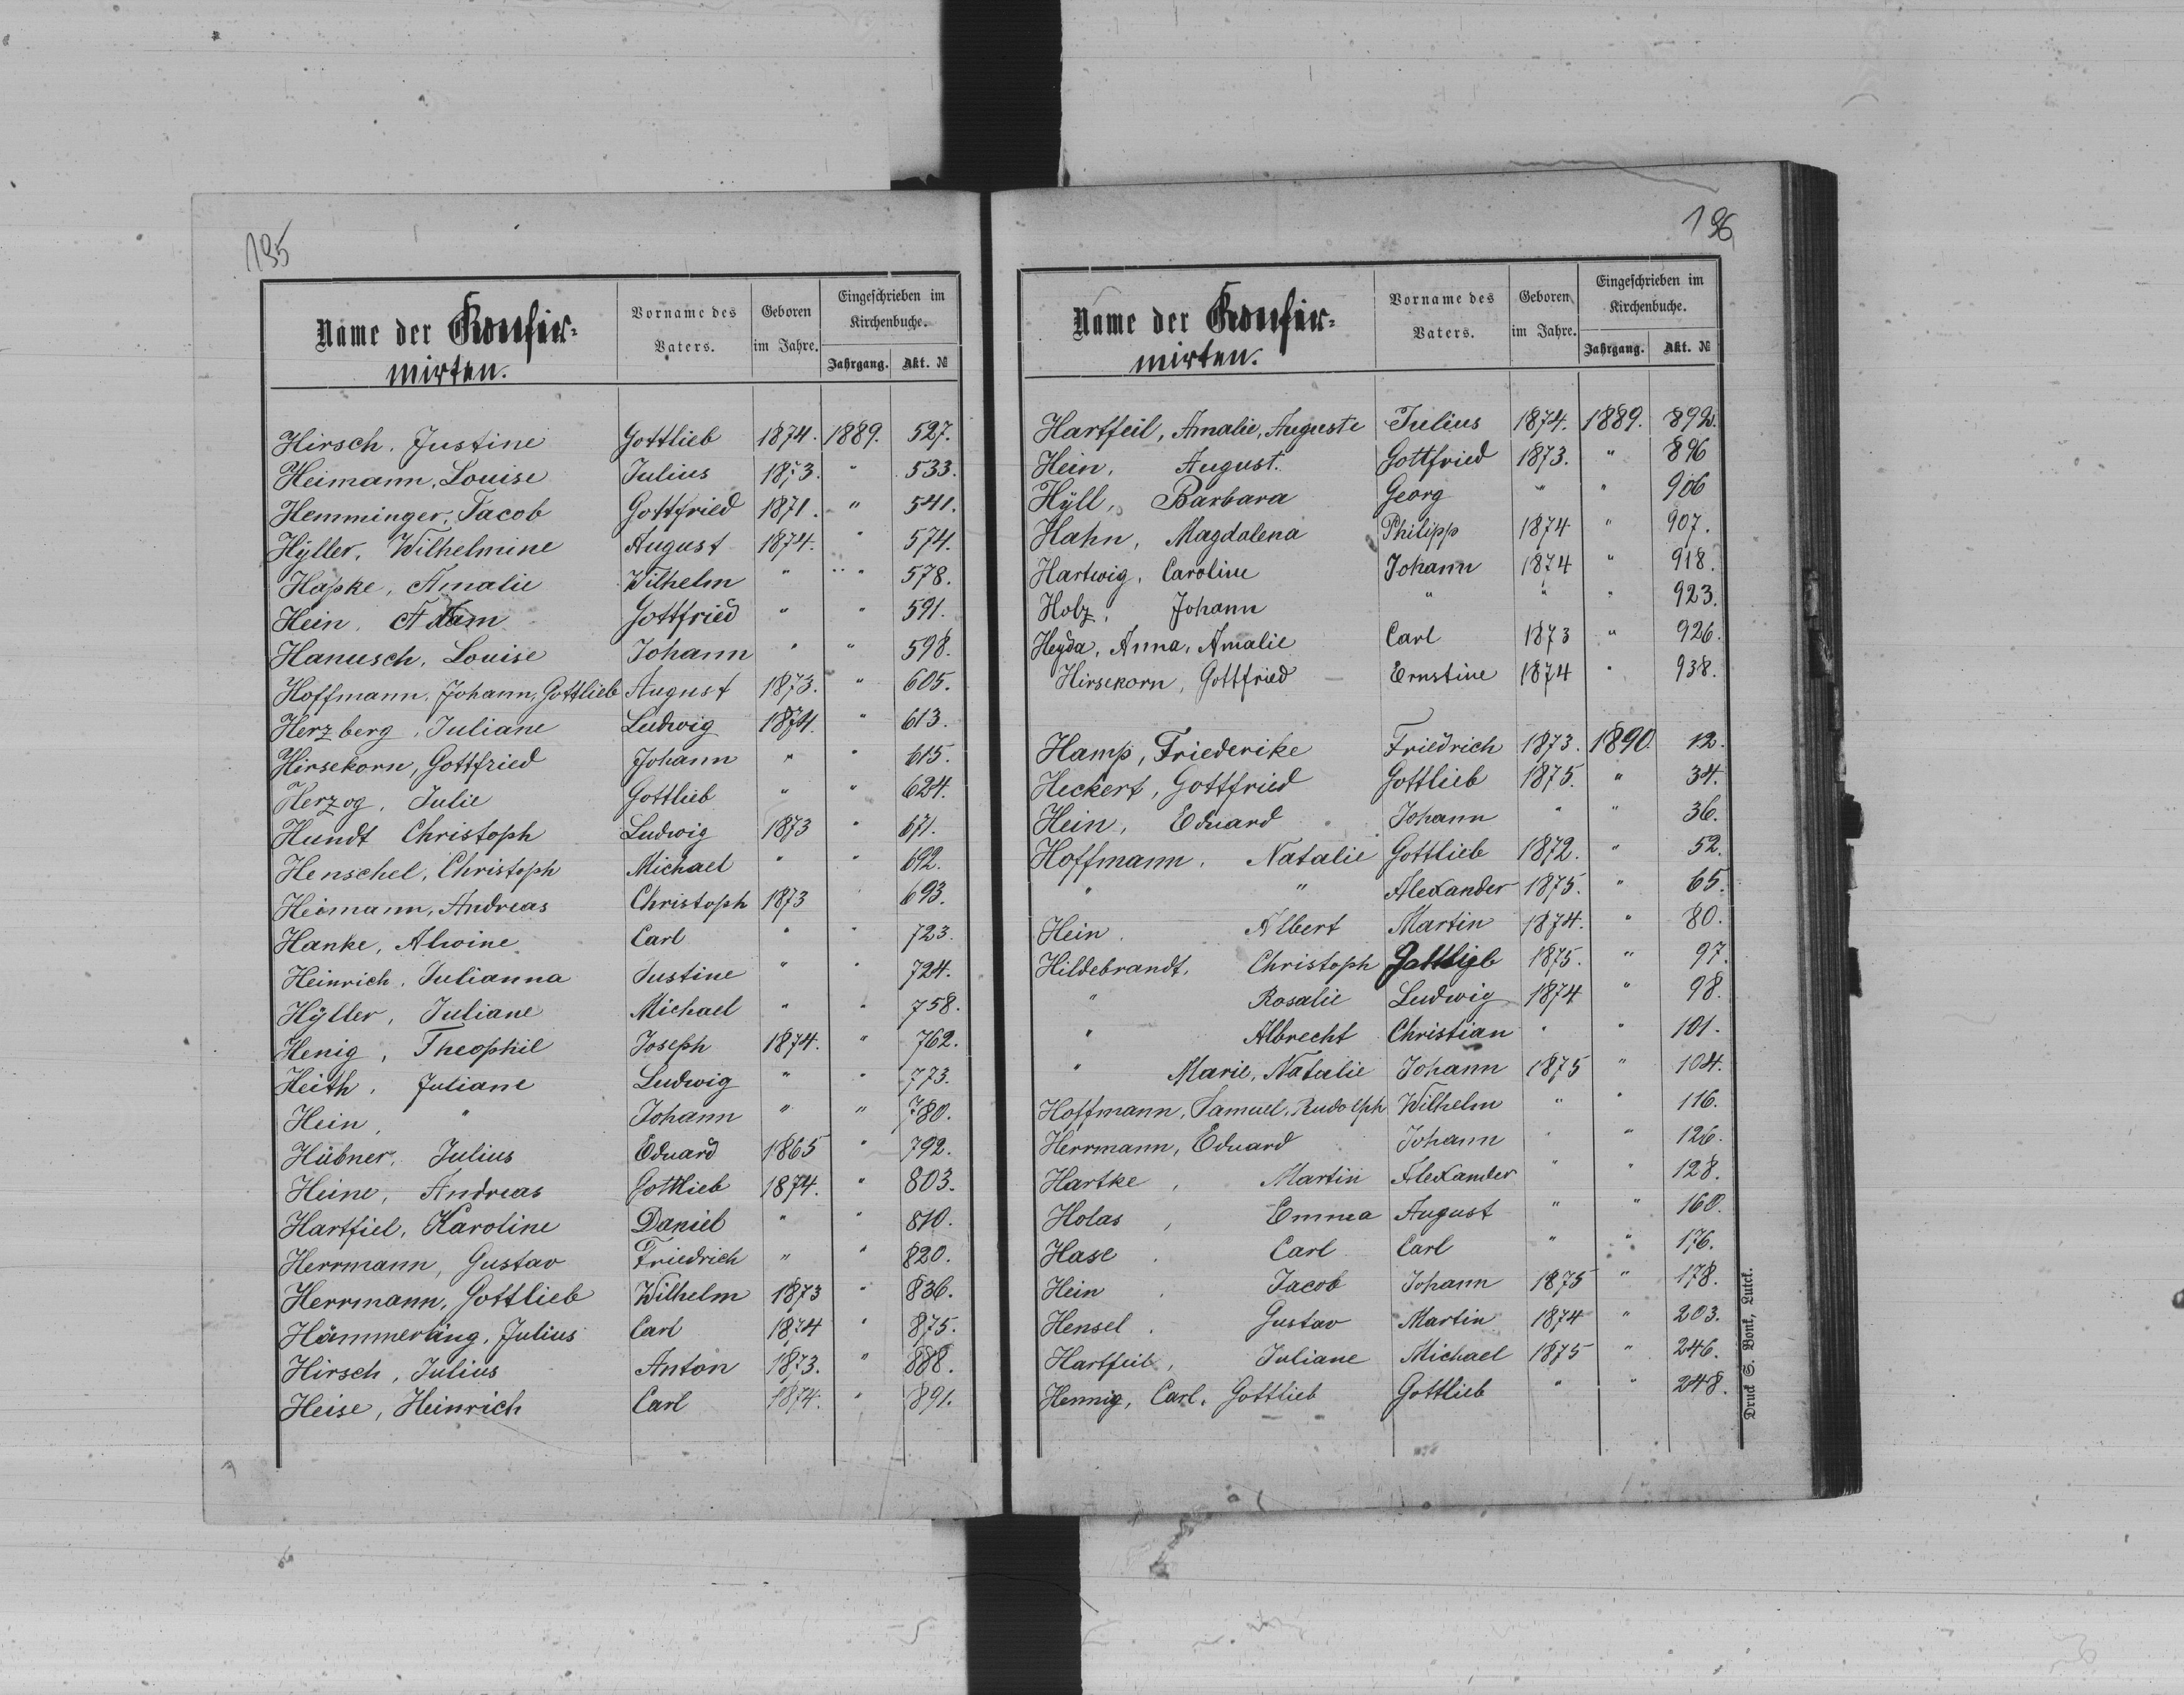 195
Name der Konfir-
mirten.
Vorname des Vaters.
Geboren im Jahre.
Eingeschrieben im Kirchenbuche.
Jahrgang. Akt. №
Hirsch, Justine Gottlieb 1874. 1889. 527.
Heimann, Louise Julius 1873. " 533.
Hemminger, Jacob Gottfried 1871. " 541.
Hÿller, Wilhelmine August 1874. " 574.
Hapke, Amalie Wilhelm " " 578.
Hein, Adam Gottfried " " 591.
Hanusch, Louise Johann " " 598.
Hoffmann, Johann, Gottlieb August 1873. " 605.
Herzberg, Juliane Ludwig 1874. " 613.
Hirsekorn, Gottfried Johann " " 615.
Herzog, Julie Gottlieb " " 624.
Hundt Christoph Ludwig 1873 " 671.
Henschel, Christoph Michael " " 692.
Heimann, Andreas Christoph 1873 " 693.
Hanke, Alwine Carl " " 723.
Heinrich, Julianna Justine " " 724.
Hÿller, Juliane Michael " " 758.
Henig, Theophil Joseph 1874. " 762.
Heith, Juliane Ludwig " " 773.
Hein, " Johann " " 780.
Hübner, Julius Eduard 1865 " 792.
Heine, Andreas Gottlieb 1874. " 803.
Hartfiel, Karoline Daniel " " 810.
Herrmann, Gustav Friedrich " " 820.
Herrmann, Gottlieb Wilhelm 1873 " 836.
Hämmerling, Julius Carl 1874 " 875.
Hirsch, Julius Anton 1873. " 888.
Heise, Heinrich Carl 1874. " 891.
196
Name der Konfir-
mirten.
Vorname des Vaters.
Geboren im Jahre.
Eingeschrieben im Kirchenbuche.
Jahrgang. Akt. №
Hartfeil, Amalie, Auguste Julius 1874. 1889. 892.
Hein, August. Gottfried 1873. " 896
Hÿll, Barbara Georg " " 906
Hahn, Magdalena Philipp 1874 " 907.
Hartwig, Caroline Johann 1874 " 918.
Holz, Johann " " " 923.
Heyda, Anna, Amalie Carl 1873 " 926.
Hirsekorn, Gottfried Ernstine 1874 " 938.
Hamp, Friederike Friedrich 1873. 1890. 12.
Heckert, Gottfried Gottlieb 1875. " 34.
Hein, Eduard Johann " " 36.
Hoffmann, Natalie Gottlieb 1872. " 52.
" " Alexander 1875. " 65.
Hein, Albert Martin 1874. " 80.
Hildebrandt, Christoph Gottlieb 1875. " 97.
" Rosalie Ludwig 1874 " 98.
" Albrecht Christian " " 101.
" Marie, Natalie Johann 1875 " 104.
Hoffmann, Samuel, Rudolph Wilhelm " " 116.
Herrmann, Eduard Johann " " 126.
Hartke, Martin Alexander " " 128.
Holas, Emma August " " 160.
Hase, Carl Carl " " 176.
Hein, Jacob Johann 1875 " 178.
Hensel, Gustav Martin 1874 " 203.
Hartfeil, Juliane Michael 1875 " 246.
Hennig, Carl, Gottlieb Gottlieb " " 248.
Druck S. Bonk, Lutck.